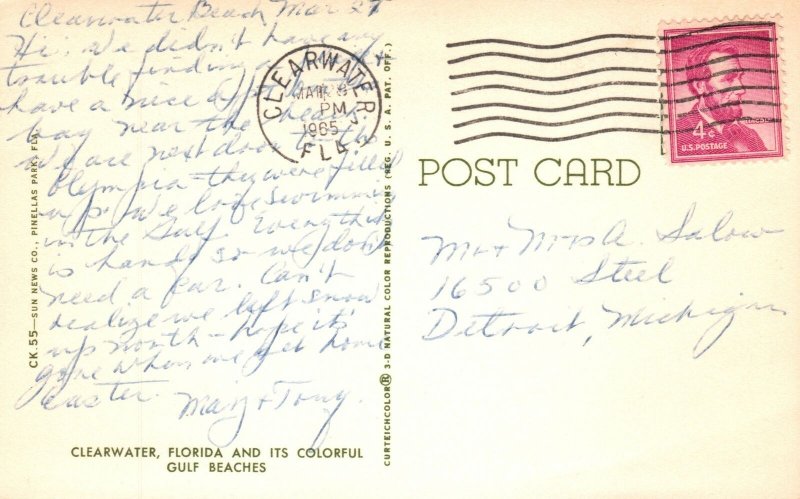 Clearwater Beach Mar 27
Hi: We didn't have any
trouble finding a
have a nice apt on the
bay near the
we are next door to the
Olympia they were filled
up. We love swimming
in the Gulf. Everything
is handy so we don't
need a car. Can't
realize we left snow
up north - hope it's
gone when we get home
Easter. Mary + Tony.
CLEARWATER, FLORIDA AND ITS COLORFUL
GULF BEACHES
CK.55—SUN NEWS CO., PINELLAS PARK, FLA.
CURTEICHCOLOR® 3-D NATURAL COLOR REPRODUCTIONS (REG. U. S. A. PAT. OFF.)
CLEARWATER,
PM
1965
FLA
4¢
U.S. POSTAGE
POST CARD
Mr + Mrs A. Salow
16500 Steel
Detroit, Michigan